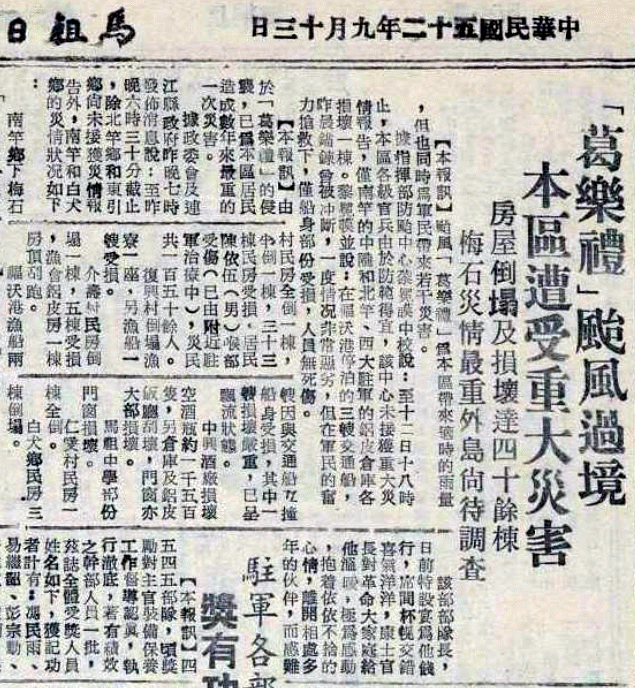 中華民國五十二年九月十三日
馬祖日
「葛樂禮」颱風過境
本區遭受重大災害
房屋倒塌及損壞達四十餘棟
梅石災情最重外島尙待調查
【本報訊】颱風「葛樂禮」爲本區帶來適時的雨量
,但也同時爲軍民帶來若干災害。
據指揮部防颱中心
中校說:至十二日十八時
止,本區各級官兵由於防範得宜,該中心未接獲重大災
情報告,僅南竿的中隴和北竿、西犬駐軍的鋁皮倉庫各
損壞一棟。
並說:在福沃港停泊的三艘交通船,
昨晨錨鍊曾被冲斷,一度情况非常惡劣,但在軍民的奮
力搶救下,僅船身部份受損,人員無死傷。
【本報訊】由
於「葛樂禮」的侵
襲,已爲本區居民
造成數年來最重的
一次災害。
據政委會及連
江縣政府昨晚七時
發佈消息說:至昨
晚六時三十分截止
,除北竿鄉和東引
鄉尙未接獲災情報
告外,南竿和白犬
鄉的災情狀况如下
:
南竿鄉下梅石
村民房全倒一棟,
半倒一棟,三十三
棟民房受損,居民
陳依伍(男)喉部
受傷(已由附近駐
軍治療中),災民
共一百五十餘人。
復興村倒塌漁
寮一座,另漁船一
艘受損。
介壽村民房倒
塌一棟,五棟受損
,漁會鋁皮房一棟
房頂刮跑。
福沃港漁船兩
艘因與交通船互撞
船身受損,其中一
艘損壞嚴重,已呈
飄流狀態。
中興酒廠損壞
空酒瓶約一千五百
隻,另倉庫及鋁皮
飯廳刮壞,門窗亦
大部損壞。
馬祖中學部份
門窗損壞。
仁愛村民房一
棟全倒。
白犬鄉民房三
棟倒塌。
該部部隊長,
日前特設宴爲他餞
行,席間杯幌交錯
喜氣洋洋,康士官
長對革命大家庭給
他溫暖,極爲感動
,抱着依依不捨的
心情,離開相處多
年的伙伴,而感難
駐軍各部
獎有功
【本報訊】四
五四五部隊,頃獎
勵對主官裝備保養
工作督導認眞,執
行澈底,著有績效
之幹部人員一批,
茲誌全體受獎人員
姓名如下,獲記功
者計有:馮民雨、
易繼韶、彭宗勳、